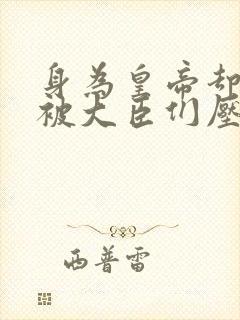 身為皇帝却
被大臣们壓
西普雷